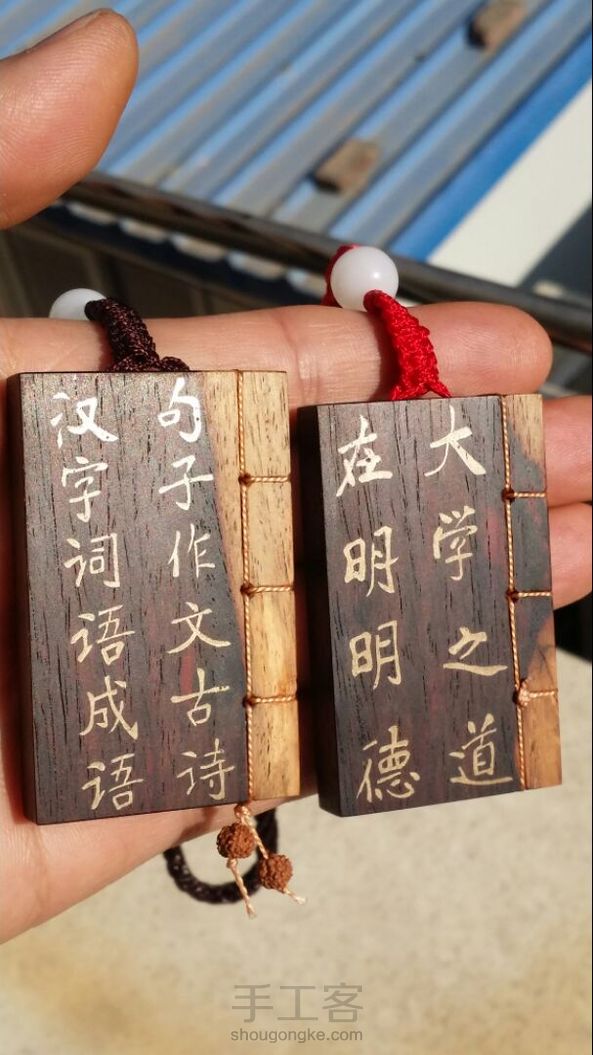 句子作文古诗
汉字词语成语
大学之道
在明明德
手工客
shougongke.com